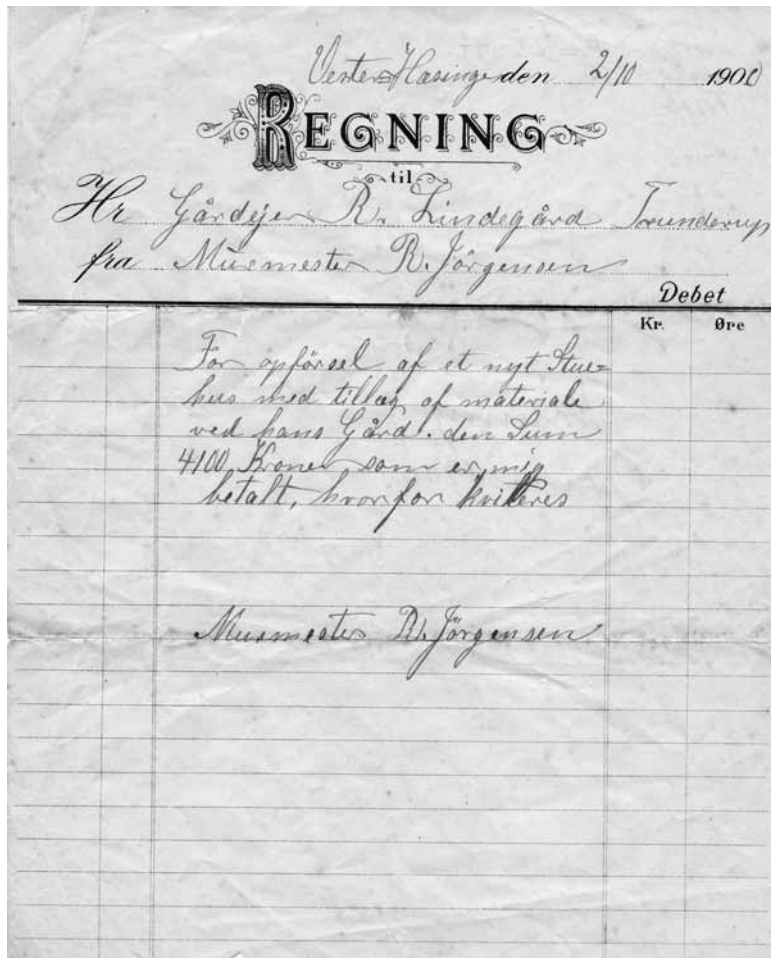 Vester-Hæsinge den 2/10 1900
REGNING
til
Hr Gårdejer R. Lindegård Trunderup
fra Murmester R. Jörgensen
Debet
Kr. Øre
For opförsel af et nyt Stue=
hus med tillæg af materiale
ved hans Gård. den Sum
4100 Kroner som er mig
betalt, hvorfor kvitteres
Murmester R. Jörgensen